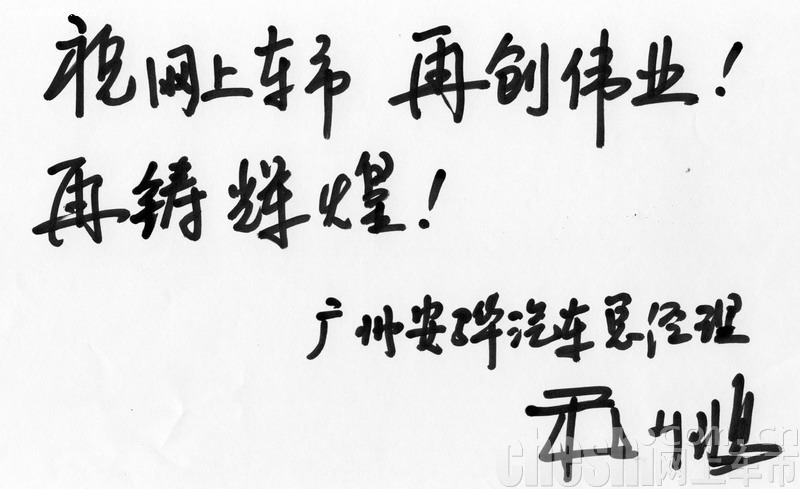 祝网上车市 再创伟业！
再铸辉煌！
广州安骅汽车总经理
cheshi.com.cn
网上车市